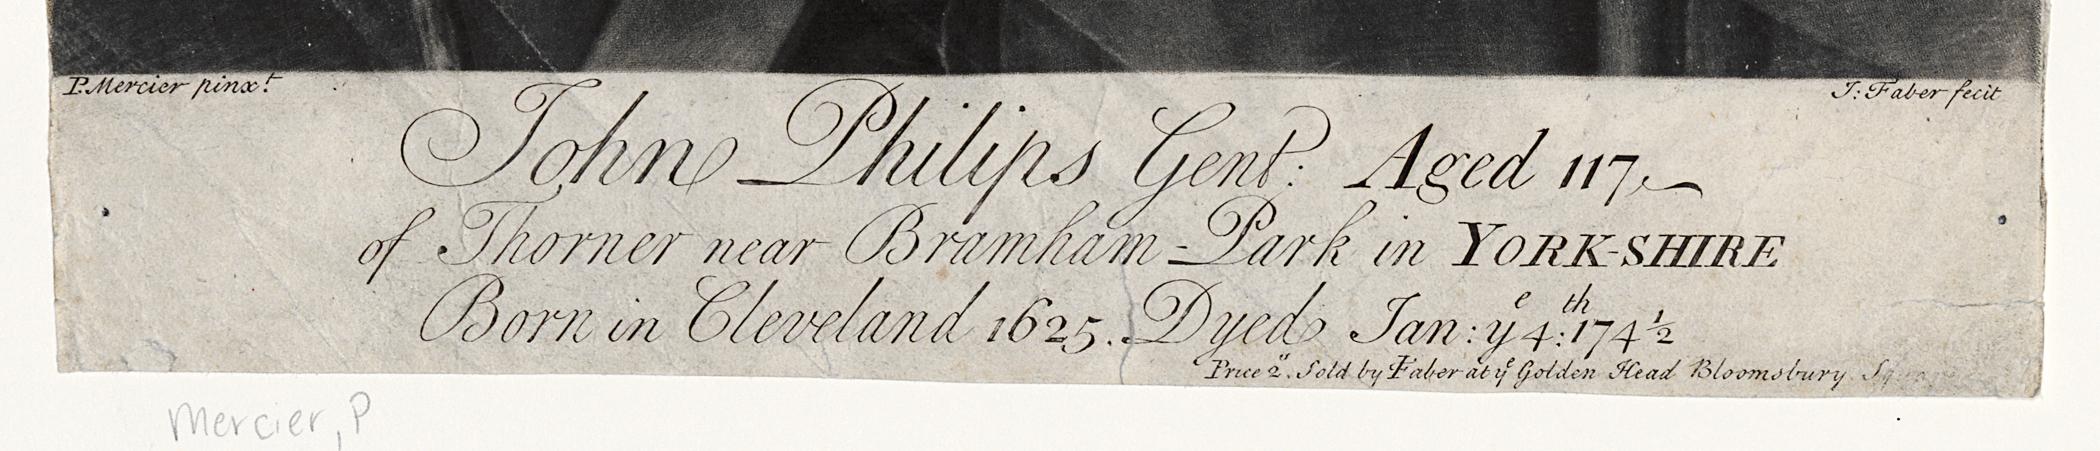 P. Mercier pinx.t
J: Faber fecit
John Philips Gent: Aged 117,
of Thorner near Bramham-Park in YORK-SHIRE
Born in Cleveland 1625. Dyed Jan: ye 4:th 174½
Price 2s. Sold by Faber at ye Golden Head Bloomsbury
Mercier, P